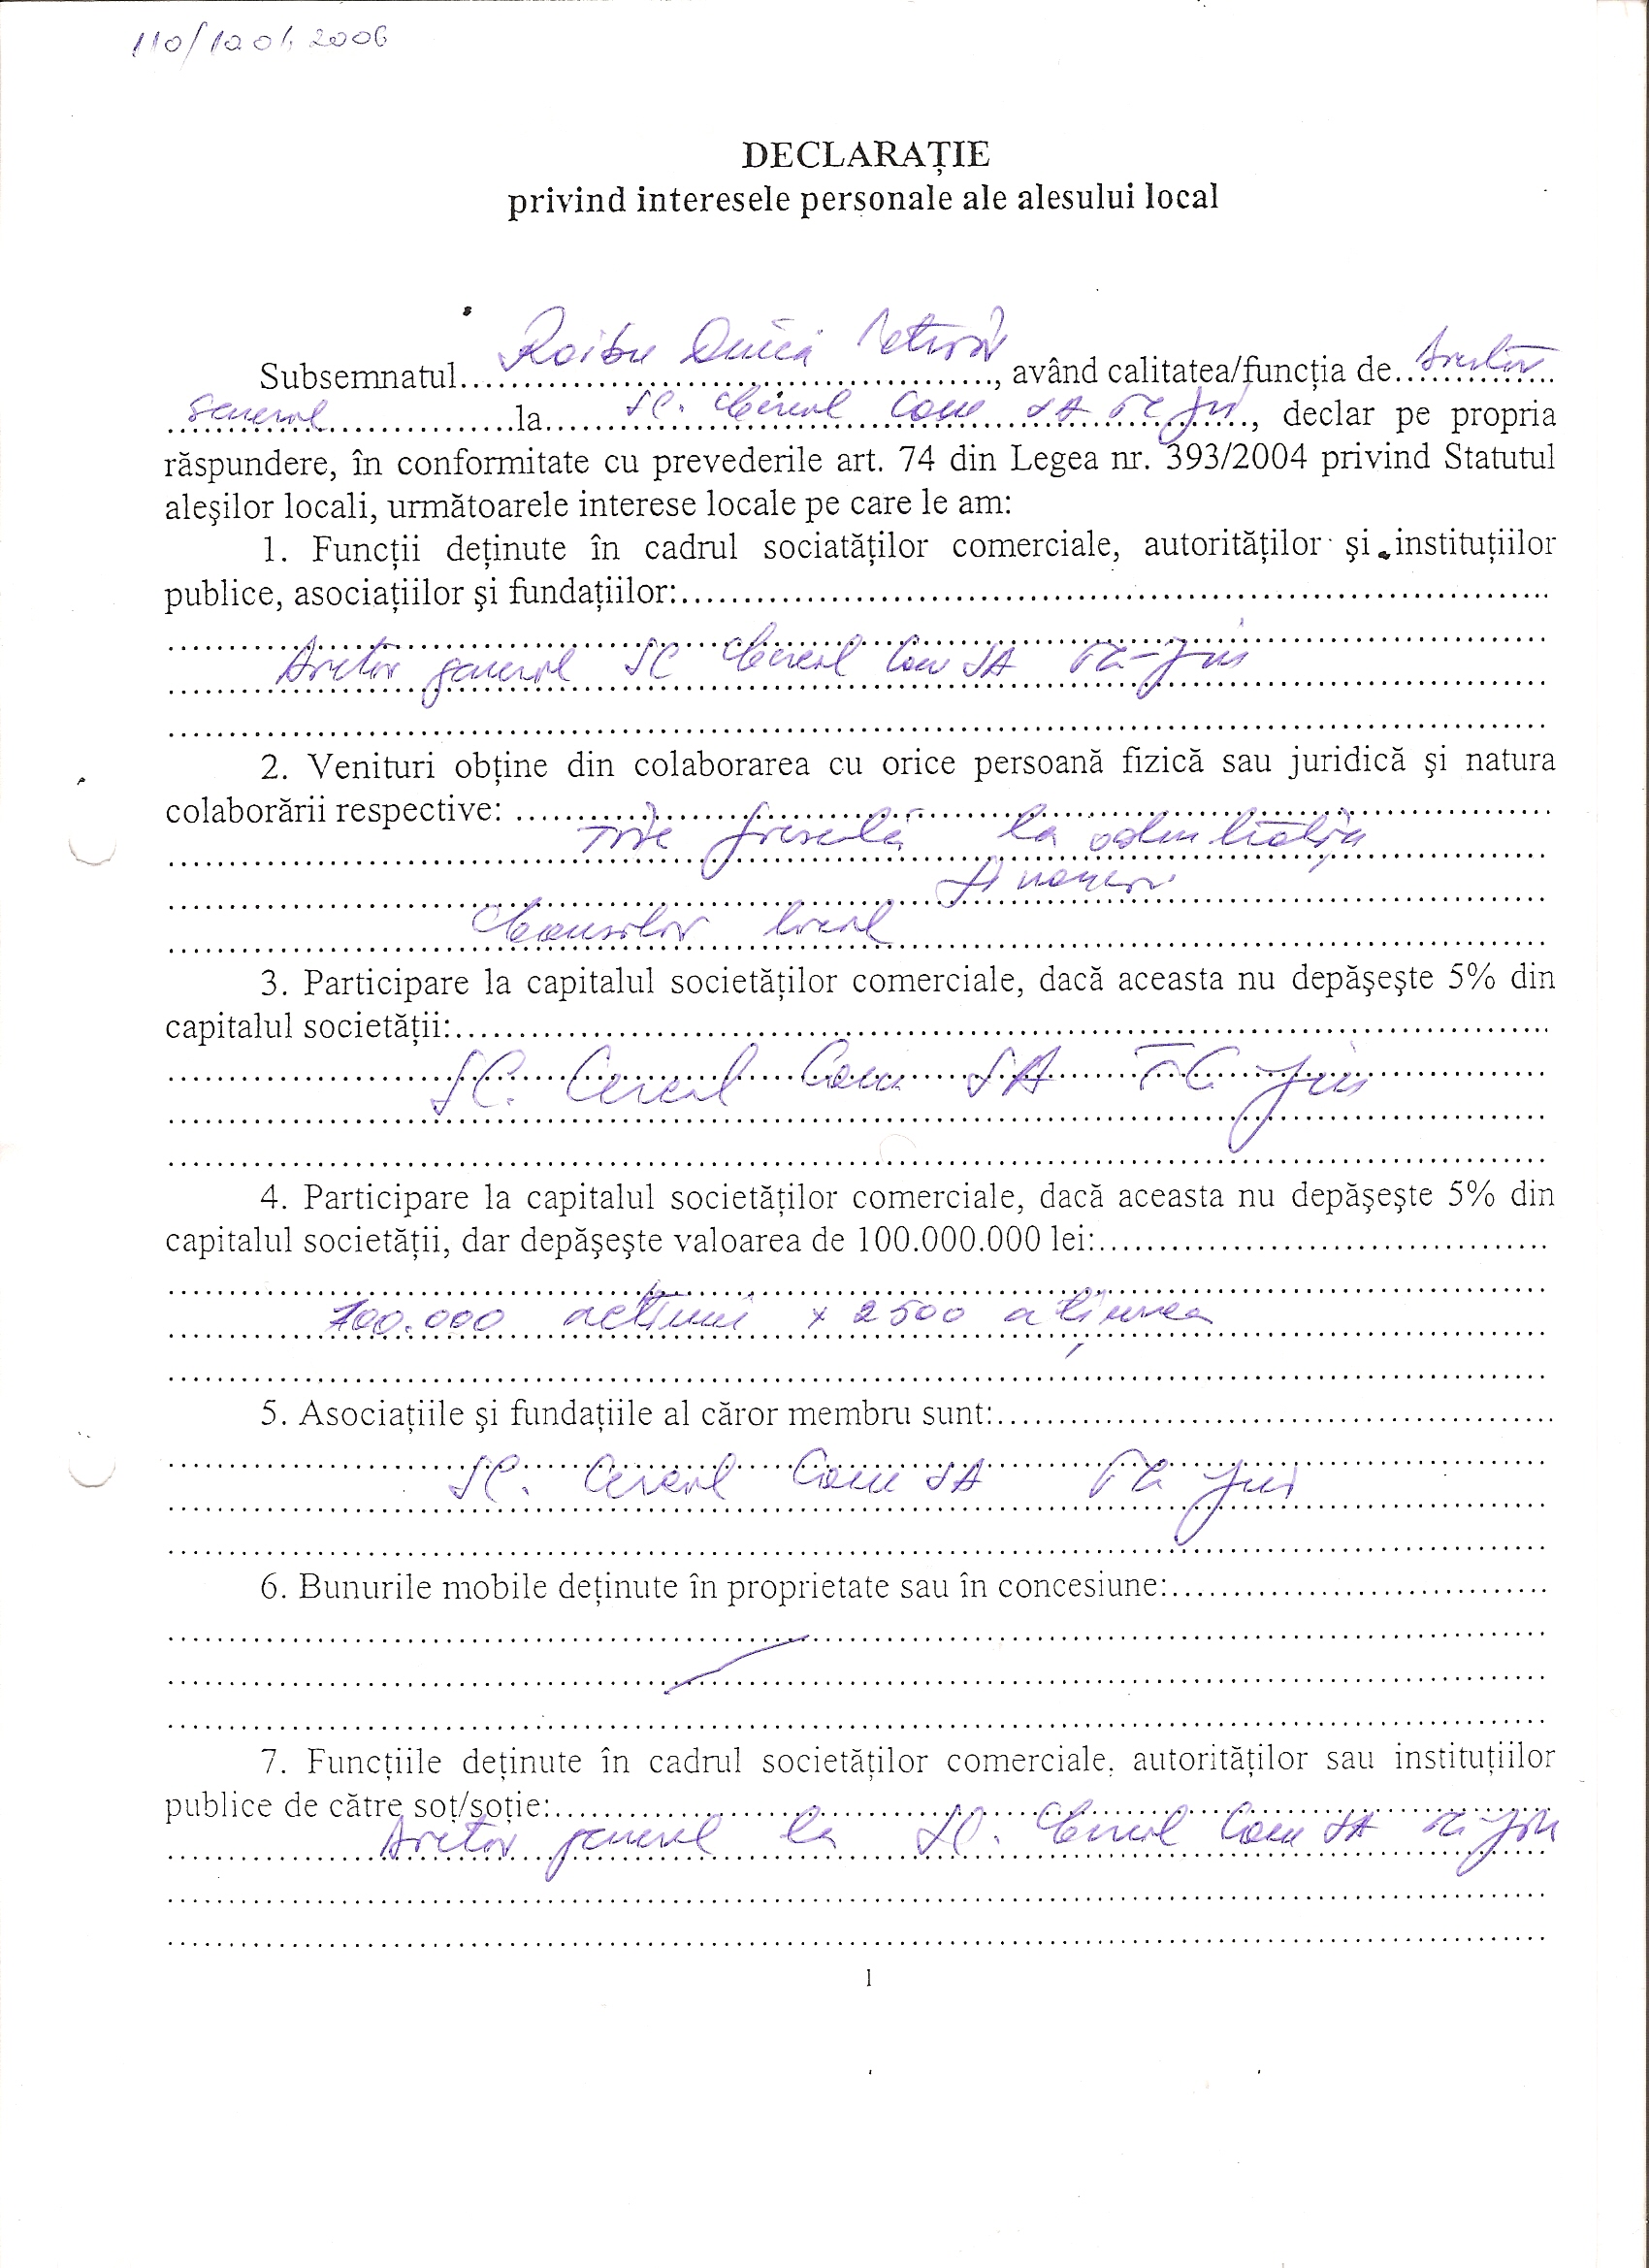 110/10 01 2006
DECLARAŢIE
privind interesele personale ale alesului local
Subsemnatul Roibu, având calitatea/funcţia de Director
General la SC. Cereal Com SA Tg Jiu, declar pe propria
răspundere, în conformitate cu prevederile art. 74 din Legea nr. 393/2004 privind Statutul
aleşilor locali, următoarele interese locale pe care le am:
1. Funcţii deţinute în cadrul sociatăţilor comerciale, autorităţilor şi instituţiilor
publice, asociaţiilor şi fundaţiilor:
Director general SC Cereal Com SA Tg-Jiu
2. Venituri obţine din colaborarea cu orice persoană fizică sau juridică şi natura
colaborării respective:
la
Consilier local
3. Participare la capitalul societăţilor comerciale, dacă aceasta nu depăşeşte 5% din
capitalul societăţii:
SC. Cereal Com SA TG Jiu
4. Participare la capitalul societăţilor comerciale, dacă aceasta nu depăşeşte 5% din
capitalul societăţii, dar depăşeşte valoarea de 100.000.000 lei:
100.000 acţiuni x 2500 acţiunea
5. Asociaţiile şi fundaţiile al căror membru sunt:
SC. Cereal Com SA Tg Jiu
6. Bunurile mobile deţinute în proprietate sau în concesiune:
7. Funcţiile deţinute în cadrul societăţilor comerciale, autorităţilor sau instituţiilor
publice de către soţ/soţie:
Director general la SC. Cereal Com SA Tg Jiu
1